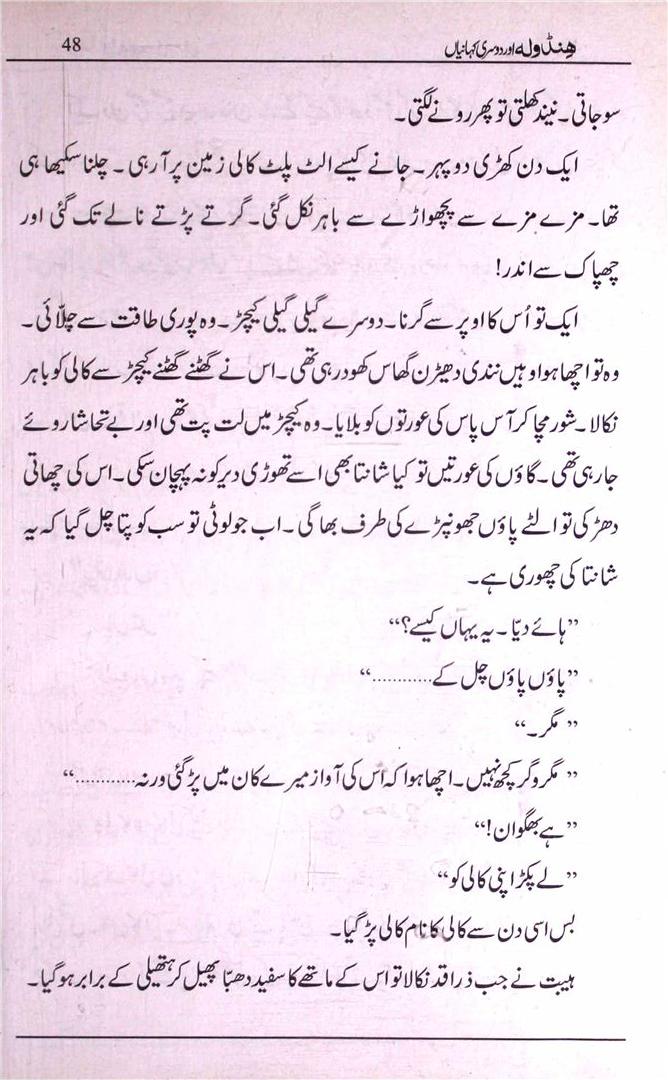 ہنڈولہ اور دوسری کہانیاں 48
سو جاتی۔ نیند کھلتی تو پھر رونے لگتی۔
ایک دن کھڑی دوپہر۔ جانے کیسے الٹ پلٹ کالی زمین پر آ رہی۔ چلنا سیکھا ہی
تھا۔ مزے مزے سے پچھواڑے سے باہر نکل گئی۔ گرتے پڑتے نالے تک گئی اور
چھپاک سے اندر!
ایک تو اُس کا اوپر سے گرنا۔ دوسرے گیلی گیلی کیچڑ۔ وہ پوری طاقت سے چلّائی۔
وہ تو اچھا ہوا وہیں نندی دھیڑن گھاس کھود رہی تھی۔ اس نے گھٹنے گھٹنے کیچڑ سے کالی کو باہر
نکالا۔ شور مچا کر آس پاس کی عورتوں کو بلایا۔ وہ کیچڑ میں لت پت تھی اور بے تحاشا روئے
جا رہی تھی۔ گاؤں کی عورتیں تو کیا شانتا بھی اسے تھوڑی دیر کو نہ پہچان سکی۔ اس کی چھاتی
دھڑکی تو الٹے پاؤں جھونپڑے کی طرف بھاگی۔ اب جو لوٹی تو سب کو پتا چل گیا کہ یہ
شانتا کی چھوری ہے۔
”ہائے دیّا۔ یہ یہاں کیسے؟“
”پاؤں پاؤں چل کے............“
”مگر۔“
”مگر وگر کچھ نہیں۔ اچھا ہوا کہ اس کی آواز میرے کان میں پڑ گئی ورنہ............“
”ہے بھگوان!“
”لے پکڑ اپنی کالی کو“
بس اسی دن سے کالی کا نام کالی پڑ گیا۔
ہیبت نے جب ذرا قد نکالا تو اس کے ماتھے کا سفید دھبّا پھیل کر ہتھیلی کے برابر ہو گیا۔